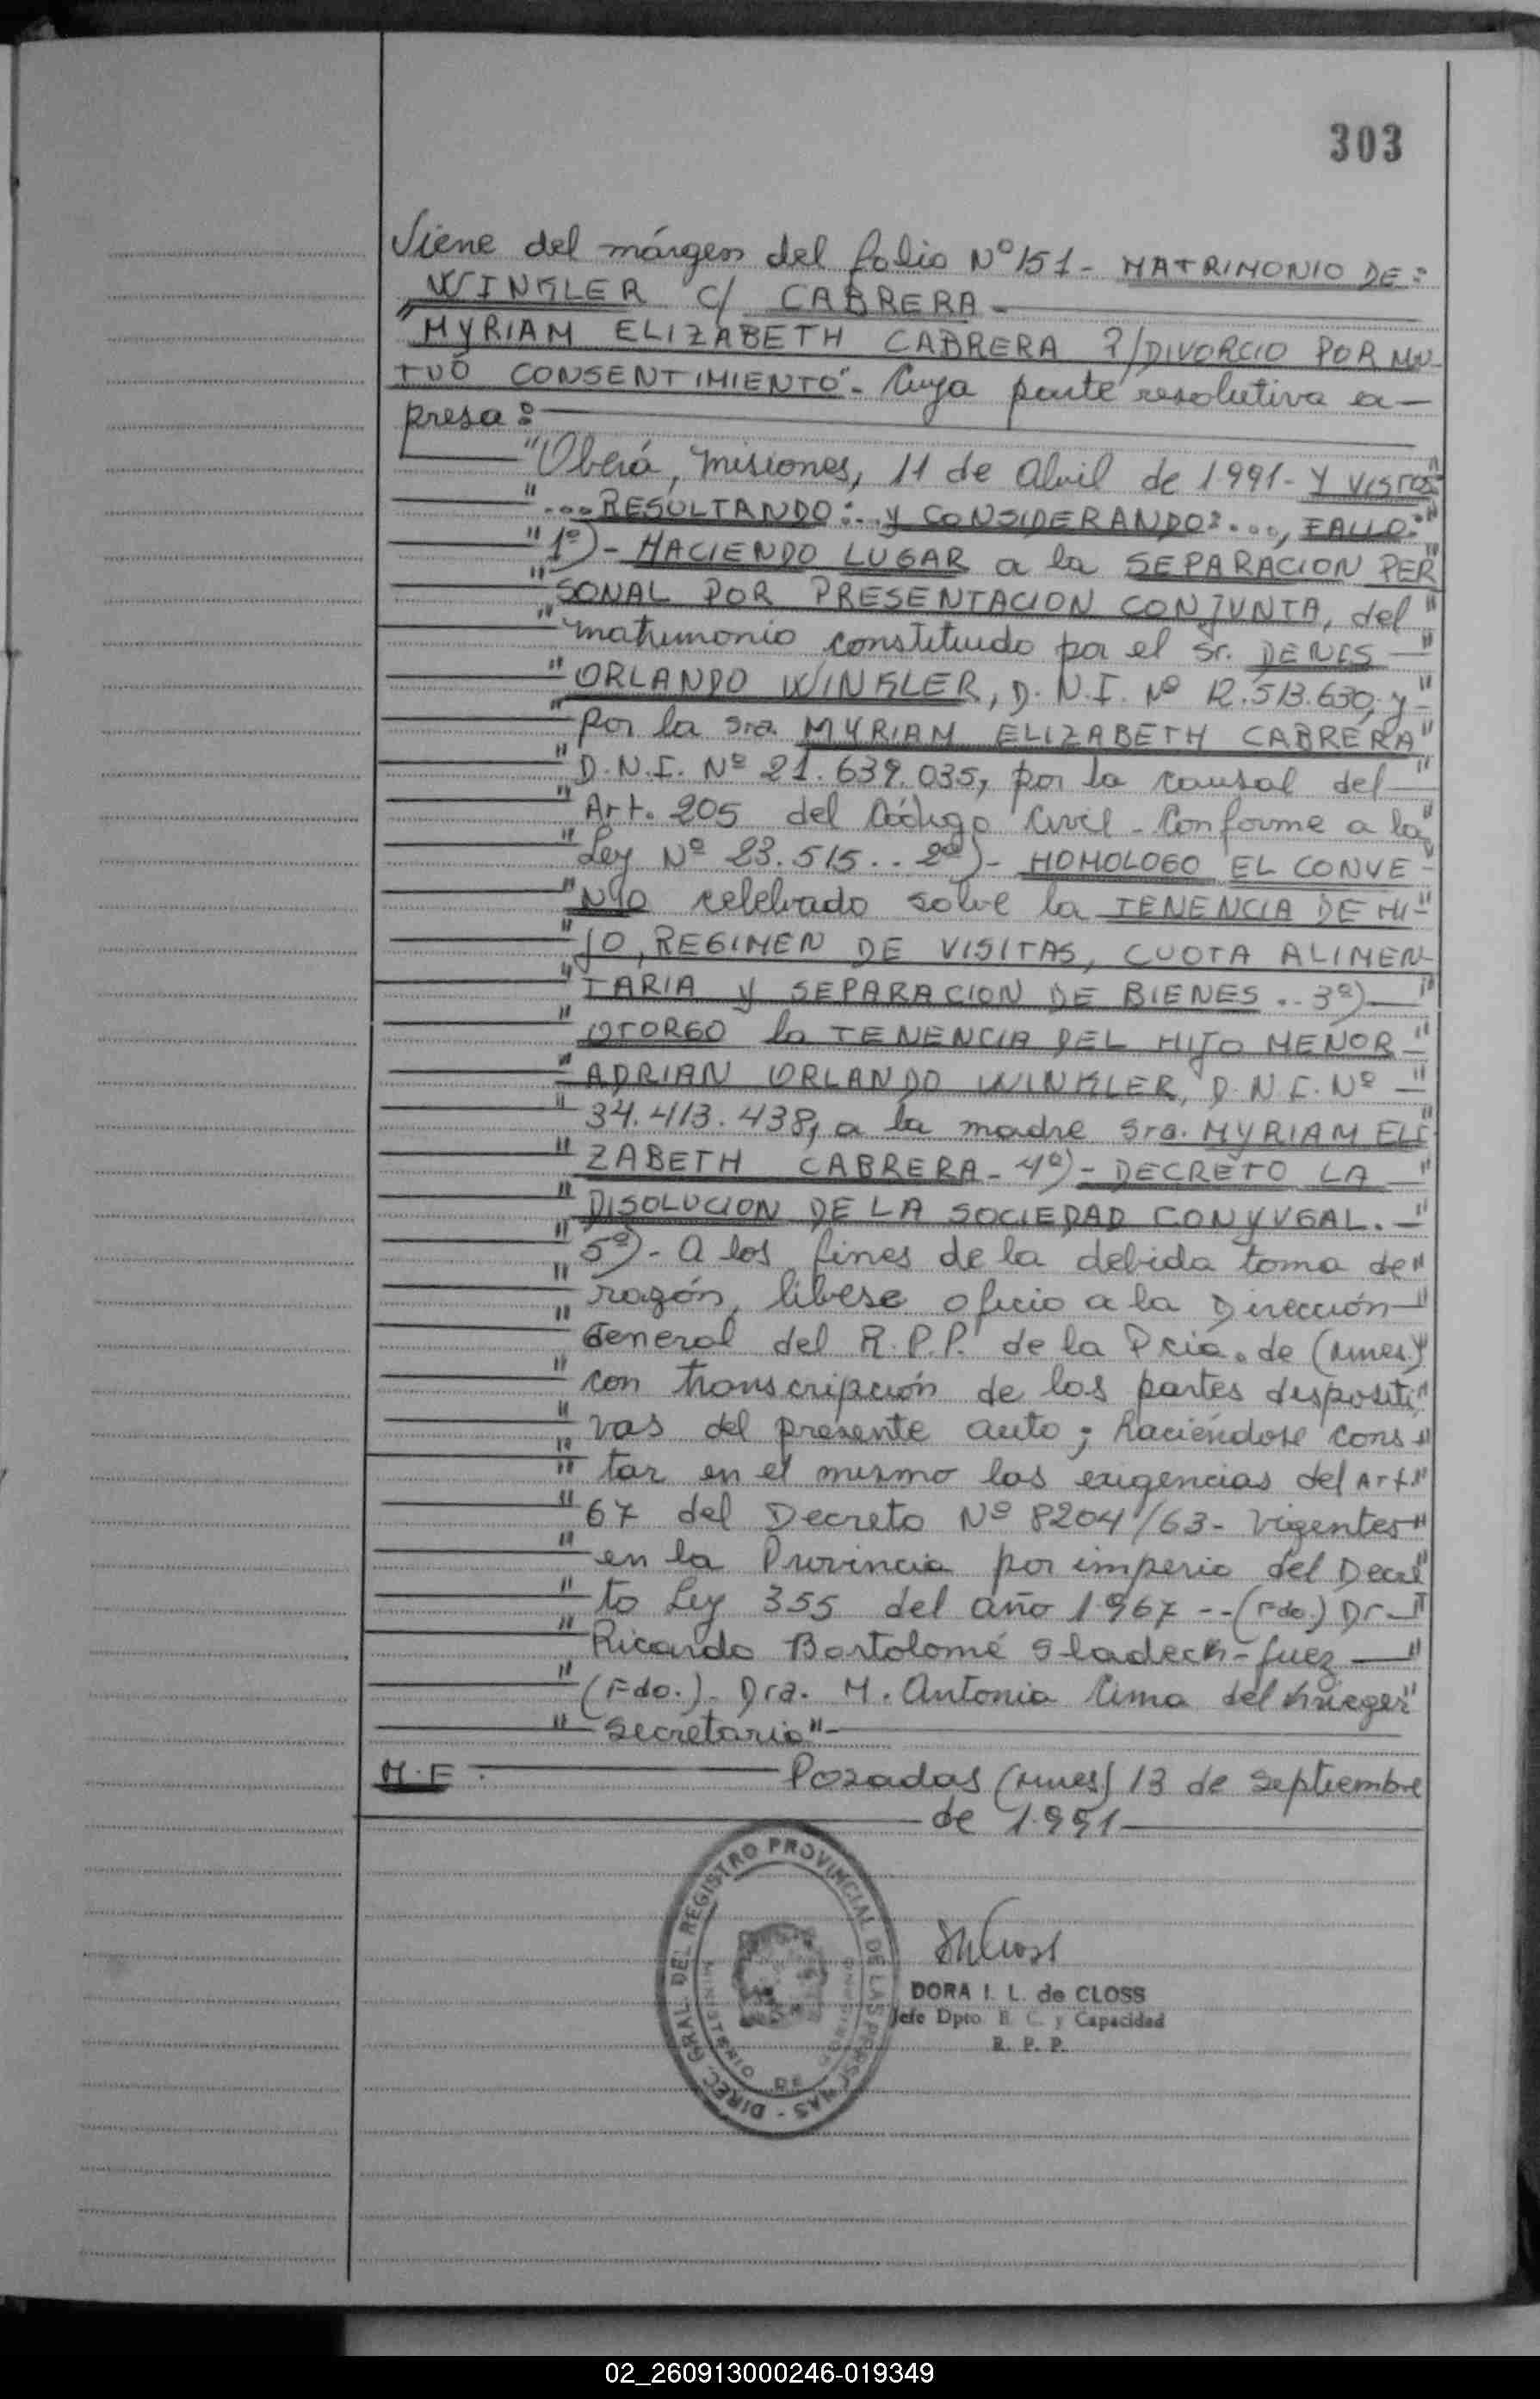 303
Viene del márgen del folio Nº 151 - MATRIMONIO DE:
WINKLER C/ CABRERA -
"MYRIAM ELIZABETH CABRERA P/DIVORCIO POR MU-
TUO CONSENTIMIENTO".- Cuya parte resolutiva ex-
presa:
"Oberá, Misiones, 11 de Abril de 1991- Y VISTOS"
"...RESULTANDO:..Y CONSIDERANDO:..., FALLO:"
"1º)- HACIENDO LUGAR a la SEPARACION PER"
"SONAL POR PRESENTACION CONJUNTA, del"
"matrimonio constituido por el Sr. DENIS"
"ORLANDO WINKLER, D.N.I. Nº 12.513.630, y"
"por la Sra. MYRIAM ELIZABETH CABRERA"
"D.N.I. Nº 21.639.035, por la causal del"
"Art. 205 del Código Civil - Conforme a la"
"Ley Nº 23.515.. 2º)- HOMOLOGO EL CONVE-
"NIO celebrado sobre la TENENCIA DE HI-"
"JO, REGIMEN DE VISITAS, CUOTA ALIMEN-
"TARIA Y SEPARACION DE BIENES.. 3º)"
"OTORGO la TENENCIA DEL HIJO MENOR"
"ADRIAN ORLANDO WINKLER, D.N.I. Nº"
"34.413.438, a la madre Sra. MYRIAM ELI"
"ZABETH CABRERA- 4º)- DECRETO LA"
"DISOLUCION DE LA SOCIEDAD CONYUGAL."
"5º)- A los fines de la debida toma de"
"razón, líbese oficio a la Dirección"
"General del R.P.P. de la Pcia. de (Mnes.)"
"con transcripción de las partes dispositi"
"vas del presente auto; haciéndose cons"
"tar en el mismo las exigencias del Art."
"67 del Decreto Nº 8204/63- Vigentes"
"en la Provincia por imperio del Decre"
"to Ley 355 del año 1967 --(Fdo.) Dr."
"Ricardo Bartolomé Sladeck - Juez"
"(Fdo.). Dra. M. Antonia Cima del Krieger"
"Secretaria"-
M.F. Posadas (Mnes) 13 de Septiembre
de 1.991
DIREC. GRAL. DEL REGISTRO PROVINCIAL DE LAS PERSONAS
DORA I. L. de CLOSS
Jefe Dpto. E. C. y Capacidad
R. P. P.
02_260913000246-019349